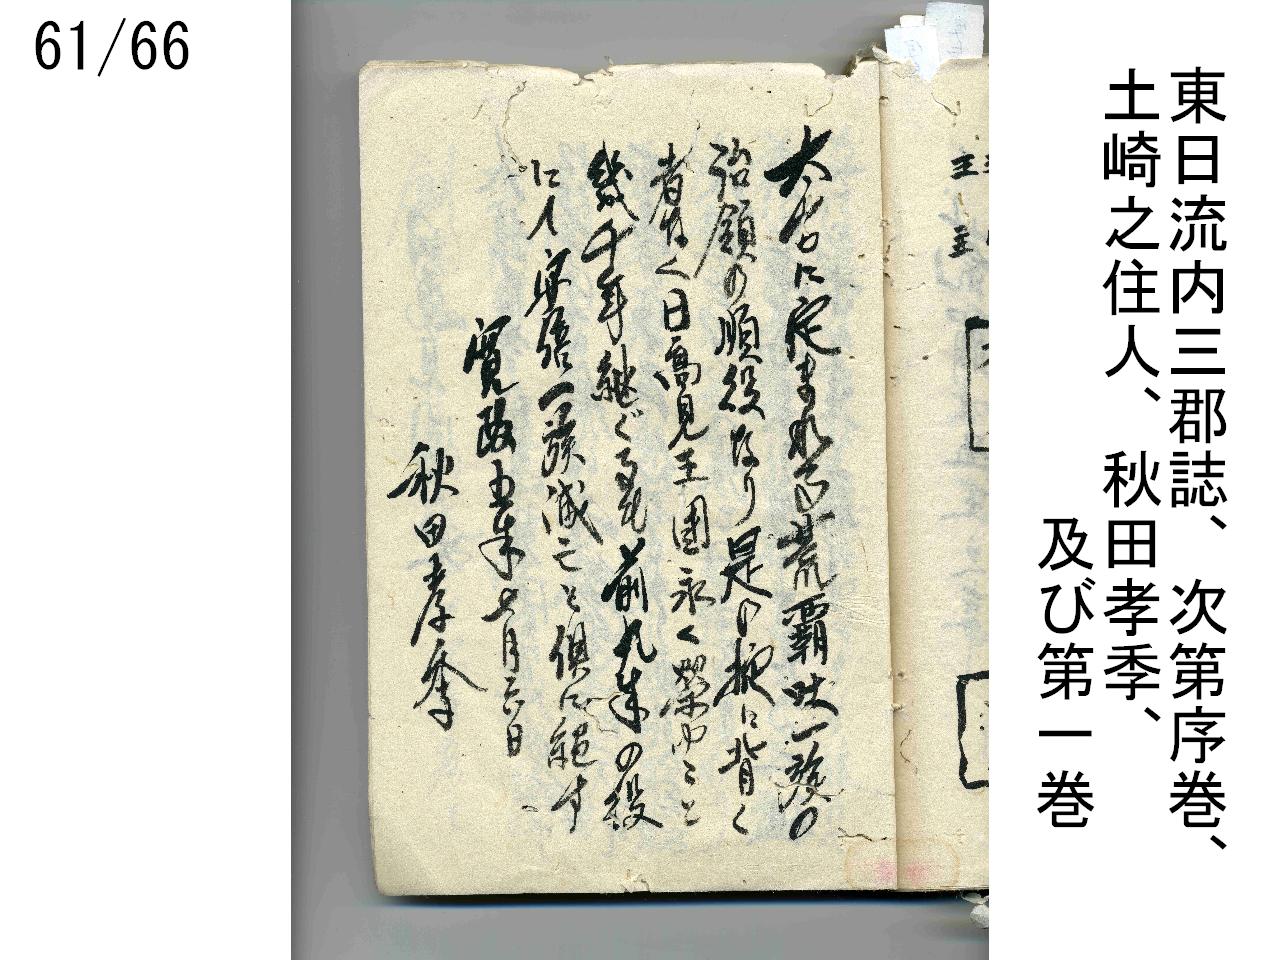 61/66
東日流内三郡誌、次第序巻、
土崎之住人、秋田孝季、
及び第一巻
大老に定まれる荒覇吐一族の
治領の順役なり是の掟に背く
者なく日高見王国永く栄ゆこと
幾千年継ぐるも前九年の役
にて安倍一族滅亡と倶に絶す
寛政五年七月六日
秋田孝季